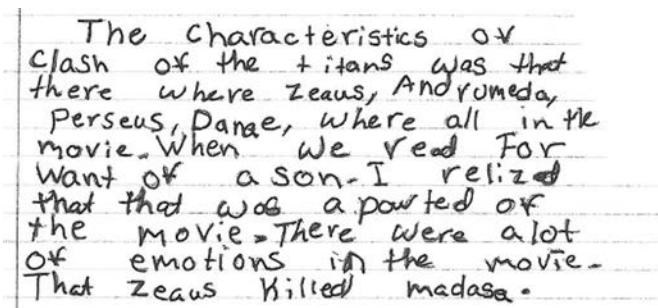 The Characteristics of
Clash of the titans was that
there where Zeaus, Andrumeda,
Perseus, Danae, where all in the
movie. When we read For
want of a son. I relized
that that was a pawrted of
the movie. There were alot
of emotions in the movie.
That Zeaus Killed madasa.